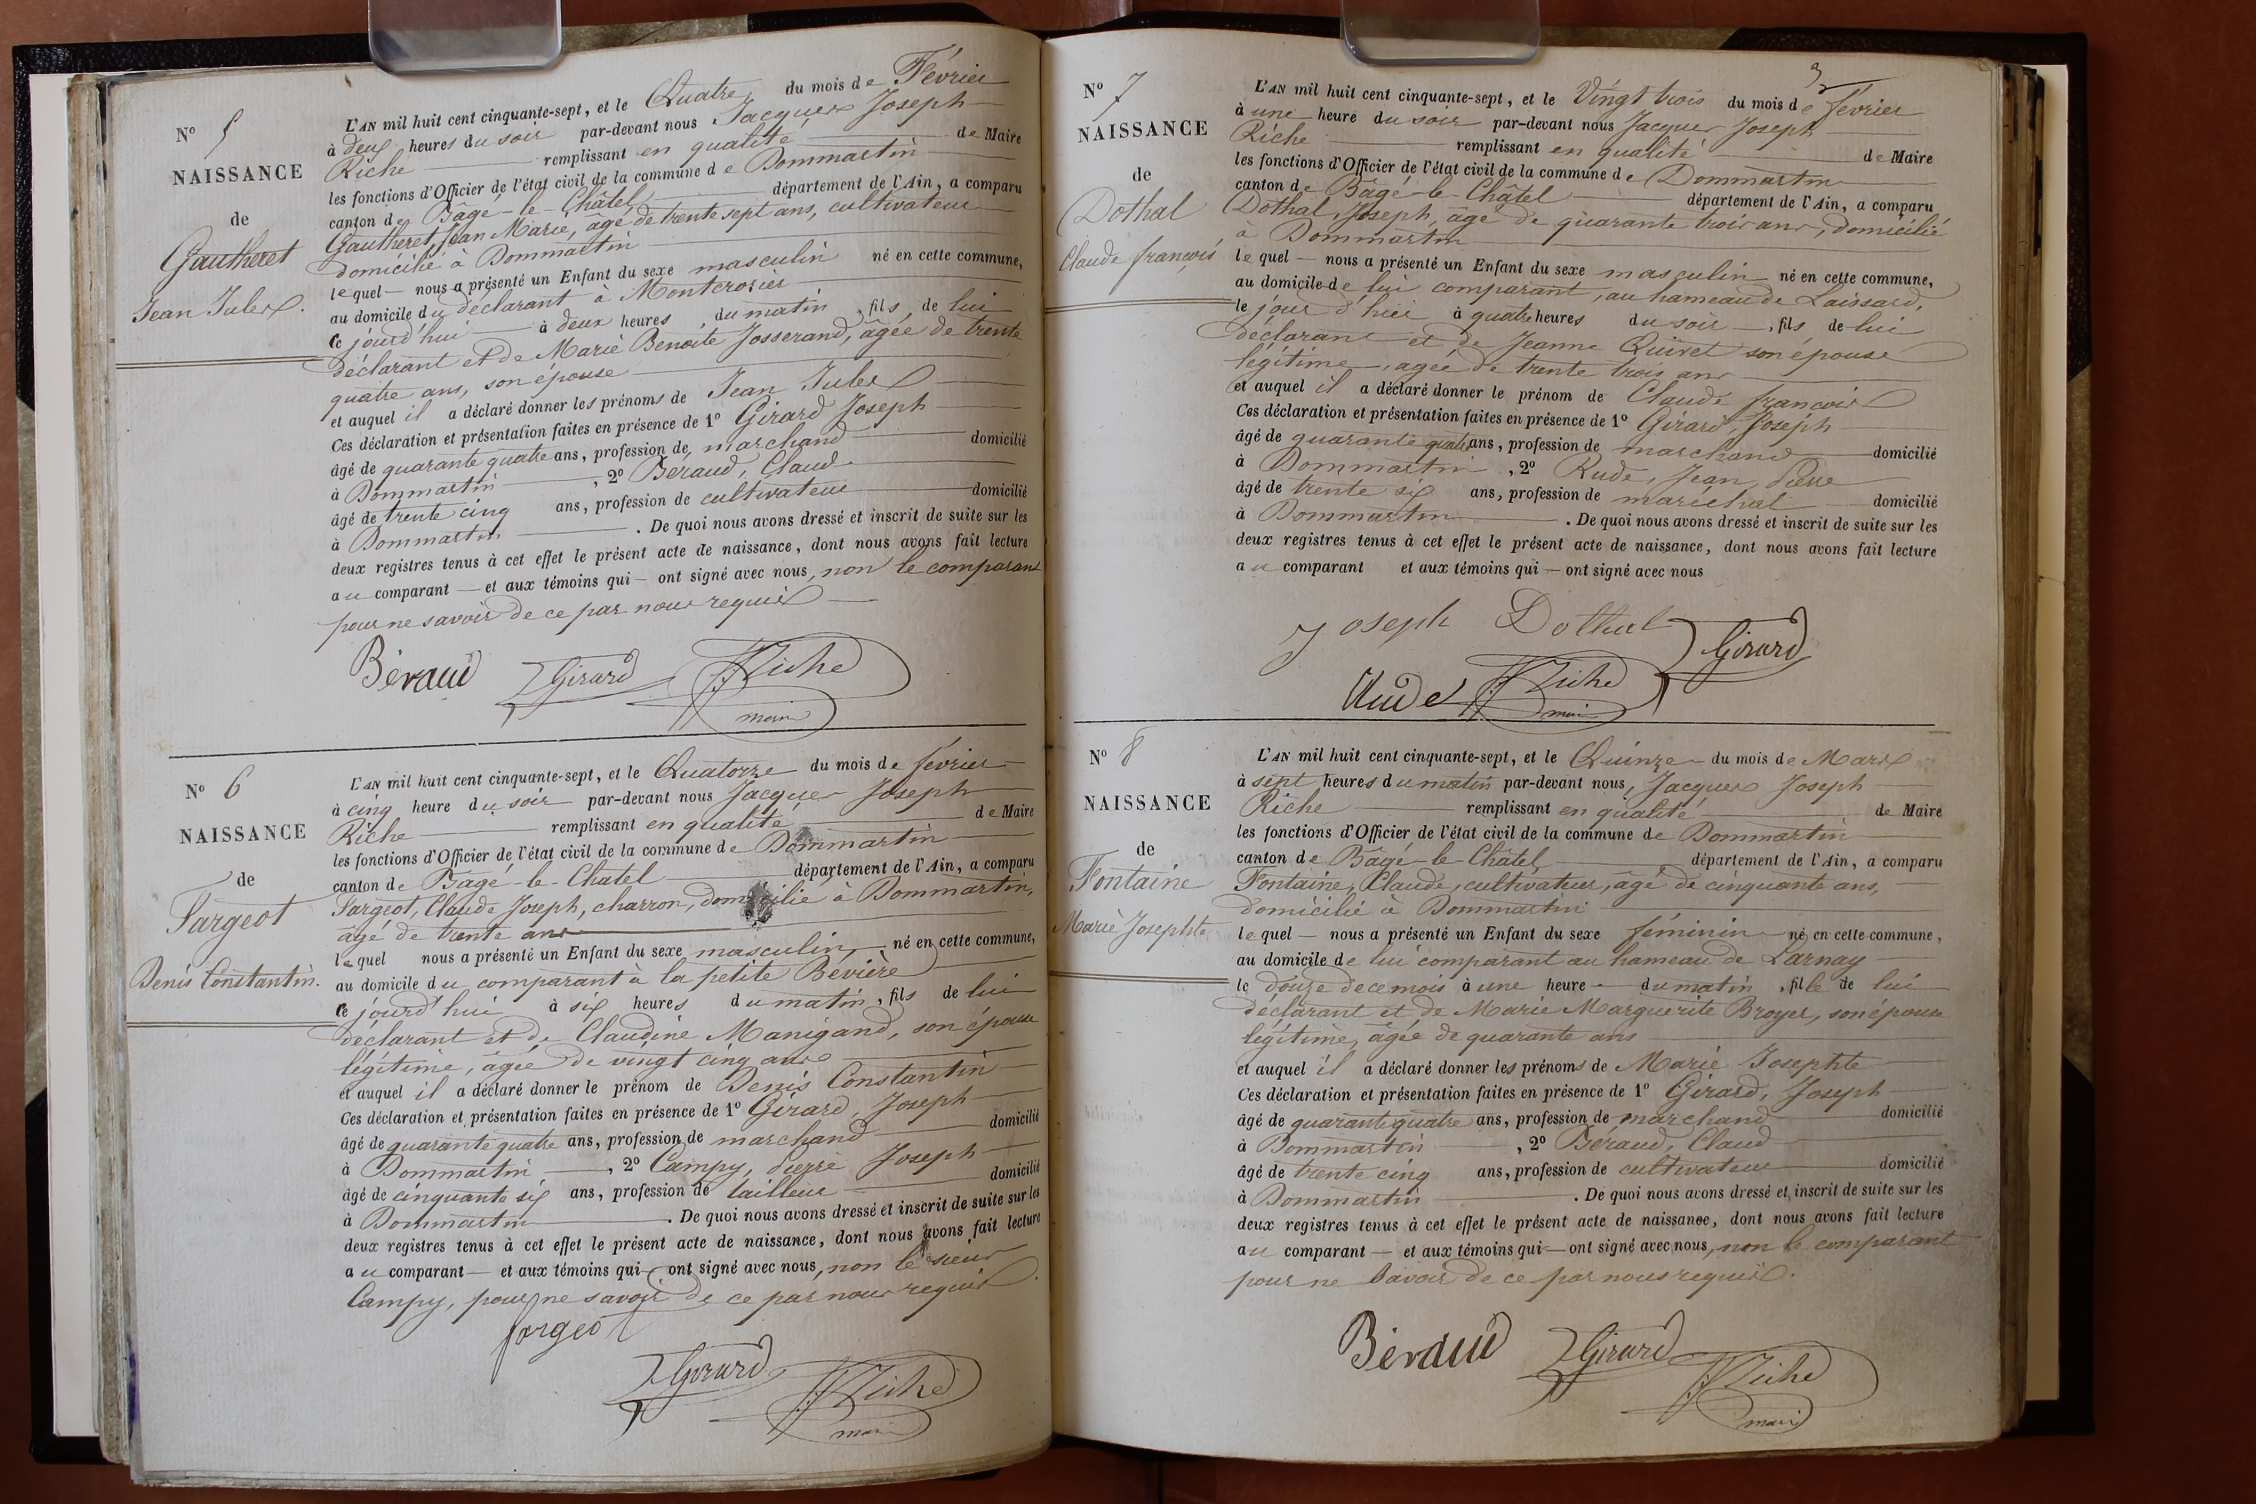 N° 5
NAISSANCE
de
Gautheret
Jean Jules.
L'AN mil huit cent cinquante-sept, et le Quatre du mois de Février
à deux heures du soir par-devant nous Jacques Joseph
Riche remplissant en qualité de Maire
les fonctions d'Officier de l'état civil de la commune de Dommartin
canton de Bâgé-le-Châtel département de l'Ain, a comparu
Gautheret, Jean Marie, âgé de trente sept ans, cultivateur
domicilié à Dommartin
lequel — nous a présenté un Enfant du sexe masculin né en cette commune,
au domicile du déclarant à Montcrosier
ce jourd'hui à deux heures du matin, fils de lui
déclarant et de Marie Benoite Josserand, âgée de trente
quatre ans, son épouse
et auquel il a déclaré donner les prénoms de Jean Jules
Ces déclaration et présentation faites en présence de 1° Girard Joseph
âgé de quarante quatre ans, profession de marchand domicilié
à Dommartin, 2° Beraud, Claud
âgé de trente cinq ans, profession de cultivateur domicilié
à Dommartin. De quoi nous avons dressé et inscrit de suite sur les
deux registres tenus à cet effet le présent acte de naissance, dont nous avons fait lecture
au comparant — et aux témoins qui — ont signé avec nous, non le comparant
pour ne savoir de ce par nous requis
Béraud Girard JJRiche
maire
N° 6
NAISSANCE
de
Sargeot
Denis Constantin.
L'AN mil huit cent cinquante-sept, et le Quatorze du mois de février
à cinq heure du soir par-devant nous Jacques Joseph
Riche remplissant en qualité de Maire
les fonctions d'Officier de l'état civil de la commune de Dommartin
canton de Bâgé-le-Chatel département de l'Ain, a comparu
Sargeot, Claude Joseph, charron, domicilié à Dommartin,
âgé de trente ans
lequel nous a présenté un Enfant du sexe masculin, né en cette commune,
au domicile du comparant à la petite Bevière
ce jourd'hui à six heures du matin, fils de lui
déclarant et de Claudine Manigand, son épouse
légitime, âgée de vingt cinq ans
et auquel il a déclaré donner le prénom de Denis Constantin
Ces déclaration et présentation faites en présence de 1° Girard, Joseph
âgé de quarante quatre ans, profession de marchand domicilié
à Dommartin, 2° Campy, Pierre Joseph
âgé de cinquante six ans, profession de tailleur domicilié
à Dommartin. De quoi nous avons dressé et inscrit de suite sur les
deux registres tenus à cet effet le présent acte de naissance, dont nous avons fait lecture
au comparant — et aux témoins qui ont signé avec nous, non le sieur
Campy, pour ne savoir de ce par nous requis.
Sargeot
Girard JJRiche
maire
3
N° 7
NAISSANCE
de
Dothal
Claude françois
L'AN mil huit cent cinquante-sept, et le Vingt trois du mois de février
à une heure du soir par-devant nous Jacques Joseph
Riche remplissant en qualité de Maire
les fonctions d'Officier de l'état civil de la commune de Dommartin
canton de Bâgé-le-Châtel département de l'Ain, a comparu
Dothal, Joseph, âgé de quarante trois ans, domicilié
à Dommartin
lequel — nous a présenté un Enfant du sexe masculin né en cette commune,
au domicile de lui comparant, au hameau de Laissard,
le jour d'hier à quatre heures du soir, fils de lui
déclarant et de Jeanne Quivet son épouse
légitime, agée de trente trois ans
et auquel il a déclaré donner le prénom de Claude françois
Ces déclaration et présentation faites en présence de 1° Girard, Joseph
âgé de quarante quatre ans, profession de marchand domicilié
à Dommartin, 2° Rude, Jean Pierre
âgé de trente six ans, profession de maréchal domicilié
à Dommartin. De quoi nous avons dressé et inscrit de suite sur les
deux registres tenus à cet effet le présent acte de naissance, dont nous avons fait lecture
au comparant et aux témoins qui — ont signé avec nous
Joseph Dothal Girard
Rude JJRiche
maire
N° 8
NAISSANCE
de
Fontaine
Marie Josephte
L'AN mil huit cent cinquante-sept, et le Quinze du mois de Mars
à sept heures du matin par-devant nous, Jacques Joseph
Riche remplissant en qualité de Maire
les fonctions d'Officier de l'état civil de la commune de Dommartin
canton de Bâgé-le-Châtel département de l'Ain, a comparu
Fontaine, Claude, cultivateur, âgé de cinquante ans,
domicilié à Dommartin
lequel — nous a présenté un Enfant du sexe féminin né en cette commune,
au domicile de lui comparant au hameau de Larnay
le douze de ce mois à une heure du matin, fille de lui
déclarant et de Marie Marguerite Broyer, son épouse
légitime, âgée de quarante ans
et auquel il a déclaré donner les prénoms de Marie Josephte
Ces déclaration et présentation faites en présence de 1° Girard, Joseph
âgé de quarante quatre ans, profession de marchand domicilié
à Dommartin, 2° Beraud, Claud
âgé de trente cinq ans, profession de cultivateur domicilié
à Dommartin. De quoi nous avons dressé et inscrit de suite sur les
deux registres tenus à cet effet le présent acte de naissance, dont nous avons fait lecture
au comparant — et aux témoins qui — ont signé avec nous, non le comparant
pour ne savoir de ce par nous requis.
Béraud Girard JJRiche
maire